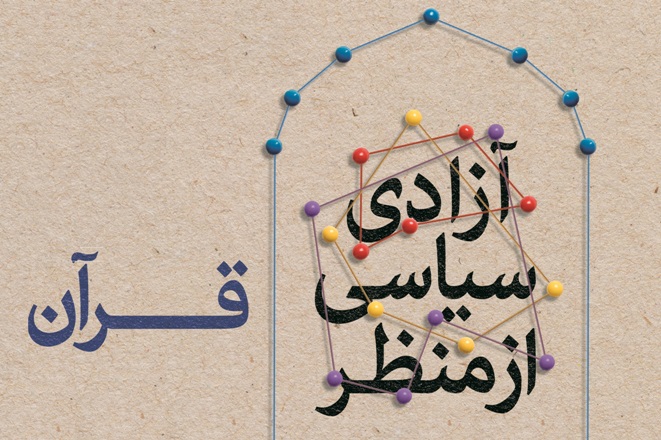 آزادی
سیاسی
از منظر
قرآن